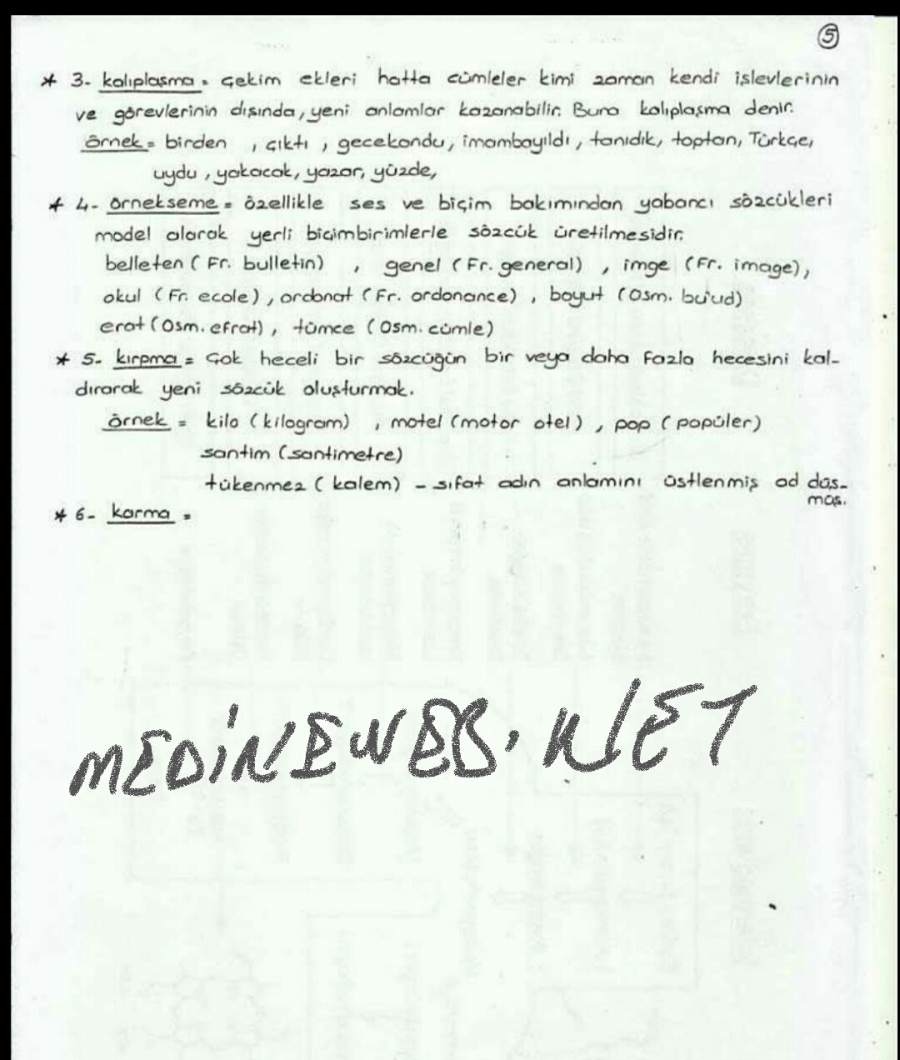 5
* 3- kalıplaşma = çekim ekleri hatta cümleler kimi zaman kendi işlevlerinin
ve görevlerinin dışında, yeni anlamlar kazanabilir. Buna kalıplaşma denir.
örnek = birden , çıktı , gecekondu, imambayıldı , tanıdık, toptan, Türkçe,
uydu , yakacak, yazar, yüzde,
* 4- örnekseme = özellikle ses ve biçim bakımından yabancı sözcükleri
model alarak yerli biçimbirimlerle sözcük üretilmesidir.
belleten ( Fr. bulletin) , genel ( Fr. general) , imge (Fr. image),
okul (Fr. ecole) , ordonat ( Fr. ordonance) , boyut (Osm. bu'ud)
erat (Osm. efrat) , tümce (Osm. cümle)
* 5- kırpma = Çok heceli bir sözcüğün bir veya daha fazla hecesini kal-
dırarak yeni sözcük oluşturmak.
örnek = kilo ( kilogram) , motel (motor otel) , pop ( popüler)
santim (santimetre)
tükenmez ( kalem) - sıfat adın anlamını üstlenmiş ad düş-
müş.
* 6- karma =
MEDİNEWEB.NET